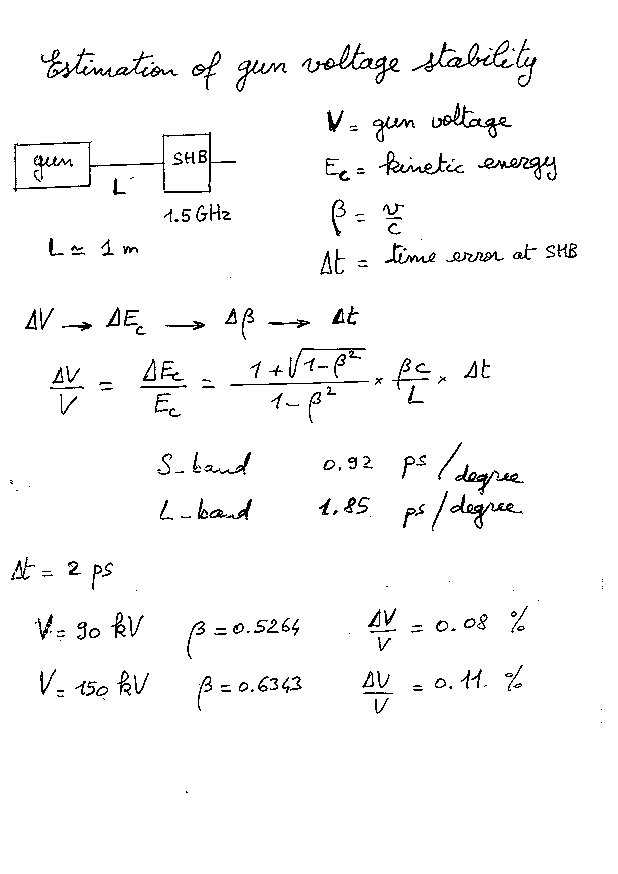 Estimation of gun voltage stability
V = gun voltage
gun SHB
L
E_c = kinetic energy
1.5 GHz
β = v/c
L ≃ 1 m
Δt = time error at SHB
ΔV → ΔE_c → Δβ → Δt
ΔV/V = ΔE_c/E_c = (1 + √(1-β²))/(1-β²) × βc/L × Δt
S-band 0.92 ps/degree
L-band 1.85 ps/degree
Δt = 2 ps
V = 90 kV β = 0.5264 ΔV/V = 0.08 %
V = 150 kV β = 0.6343 ΔV/V = 0.11 %